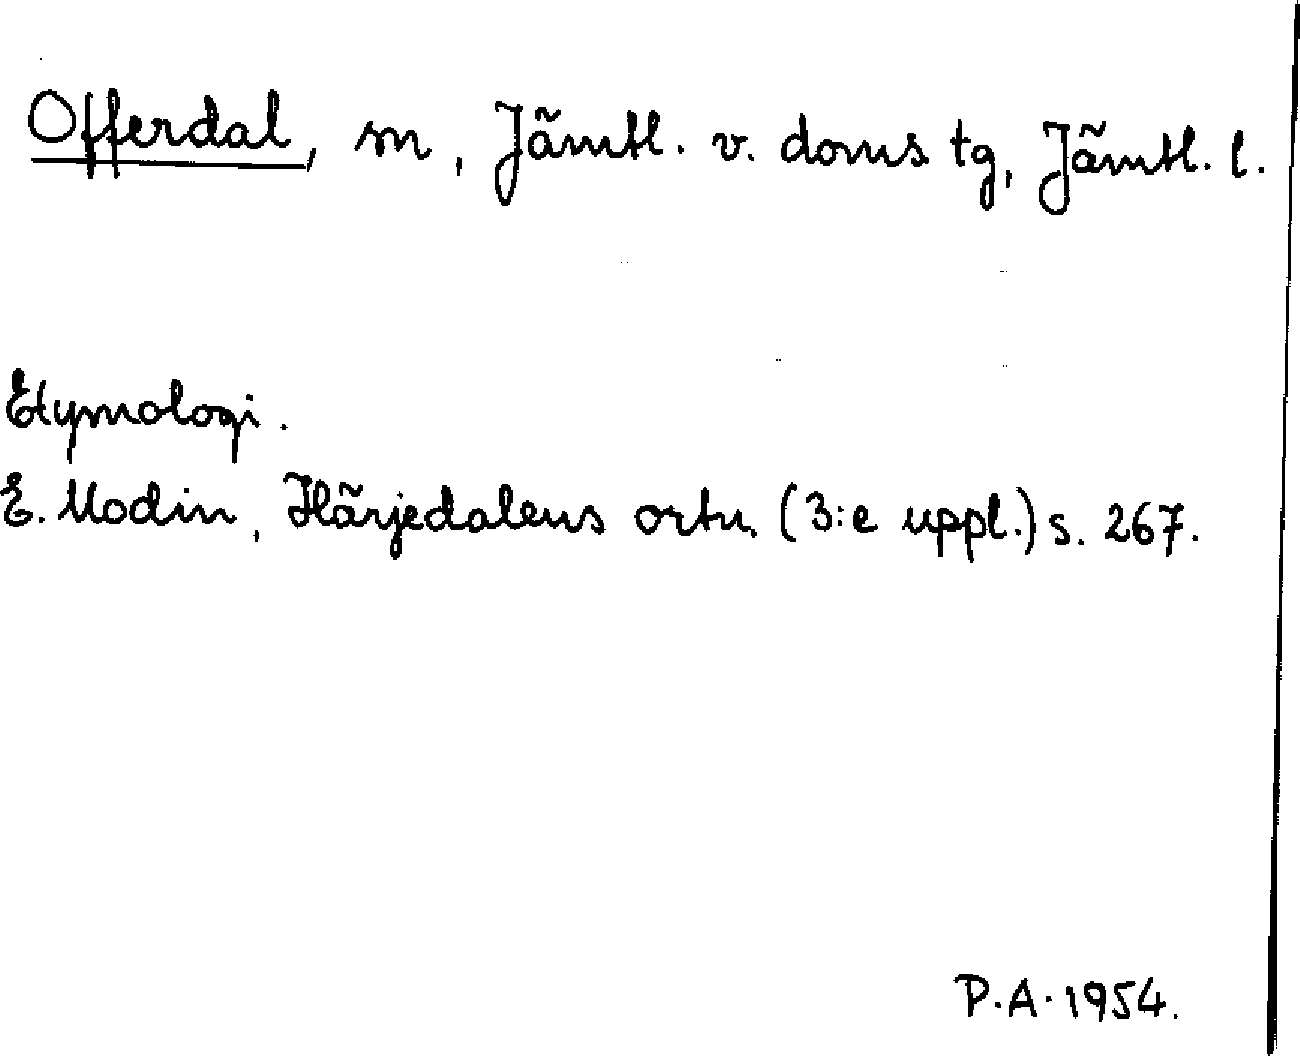 Offerdal, sn, Jämtl. v. doms tg, Jämtl. l.
Etymologi.
E. Modin, Härjedalens ortn. (3:e uppl.) s. 267.
P.A. 1954.